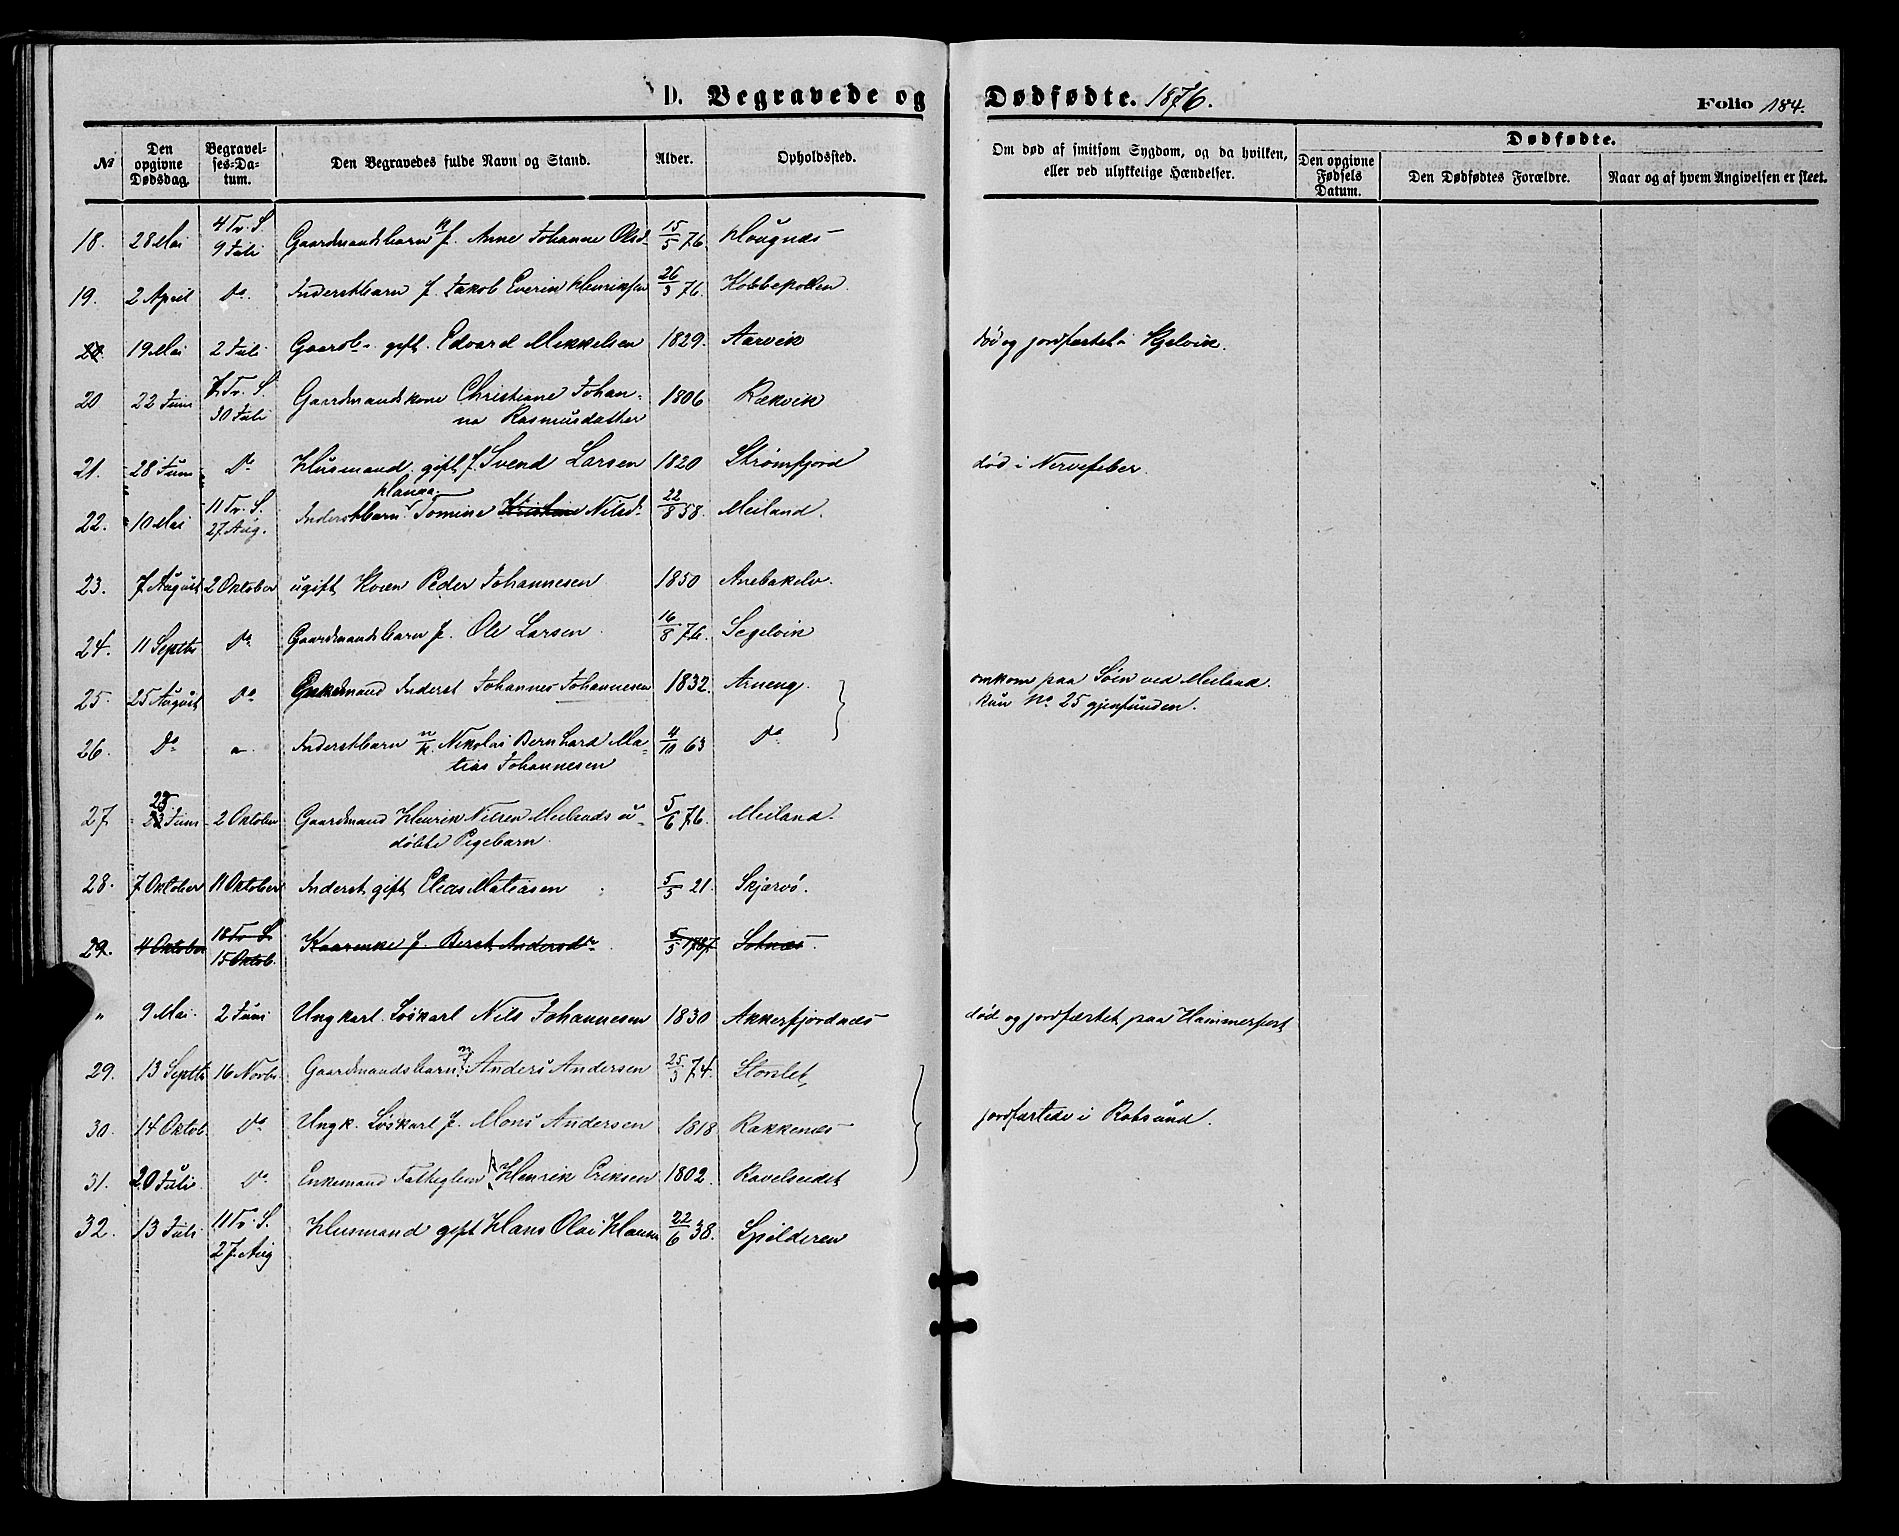 D. Begravede og Dødfødte. 1876.
Folio 184.
№
Den opgivne Dødsdag.
Begravelses-Datum.
Den Begravedes fulde Navn og Stand.
Alder.
Opholdssted.
Om død af smitsom Sygdom, og da hvilken, eller ved ulykkelige Hændelser.
Dødfødte.
Den opgivne Fødsels Datum.
Den Dødfødtes Forældre.
Naar og af hvem Angivelsen er skeet.
18. 28 Mai 4 Tr. S. 9 Juli Gaardmandsbarn f. Anne Johanne Olsd. 15/5 76. Hougnæs
19. 2 April Do. Inderstbarn f. Jakob Everin Henriksen 26/3 76. Kobbepollen
19 Mai 2 Juli Gaardb. gift. Edvard Mikkelsen 1829. Aarvik død og jordfæstet i Kjelvik.
20 22 Juni 7 Tr. S. 30 Juli Gaardmandskone Christiane Johan-
na Rasmusdatter 1806 Rækvik
21. 28 Juni Do Husmand gift f. Svend Larsen 1820 Strømfjord død i Nervefeber.
Hanna
22. 10 Mai 11 Tr. S. 27 Aug. Inderstbarn Tomine Kristine Nilsd. 22/8 58. Meiland.
23. 7 August 2 Oktober ugift Kvæn Peder Johannesen 1850 Anebakelv.
24. 11 Septbr Do Gaardmandsbarn f. Ole Larsen 16/8 76. Segelvik
25. 25 August Do Enkemand Inderst Johannes Johannesen 1832. Arneng. omkom paa Søen ved Meiland.
kun No 25 gjenfunden.
26. Do Inderstbarn Nikolai Bernhard Ma-
tias Johannesen 4/10 63 Do
27. 23 Juni 2 Oktober Gaardmand Henrik Nilsen Meilands u-
døbte Pigebarn. 5/6 76. Meiland.
28. 7 Oktober 11 Oktober Inderst gift Elias Matiasen 5/5 21. Skjærvö.
29. 4 Oktober 18 Tr. S. 15 Oktob. Berit Andersdr. 5/5 1787 Sotnæs.
" 9 Mai 2 Juni Ungkarl. Løskarl Nils Johannesen 1830 Akkerfjordnæs død og jordfæstet paa Hammerfest
29. 13 Septbr 16 Novbr. Gaardmandsbarn Anders Andersen 25/3 74. Storslet
30. 14 Oktob. Do Ungk. Løskarl f. Mons Andersen 1818 Rakkenæs jordfæstede i Rotsund.
31. 20 Juli Do Enkemand Fattiglem Henrik Eriksen 1802. Ravelseidet
32. 13 Juli 11 Tr. S. 27 Aug Husmand gift Hans Olai Hansen 22/6 38. Spilderen